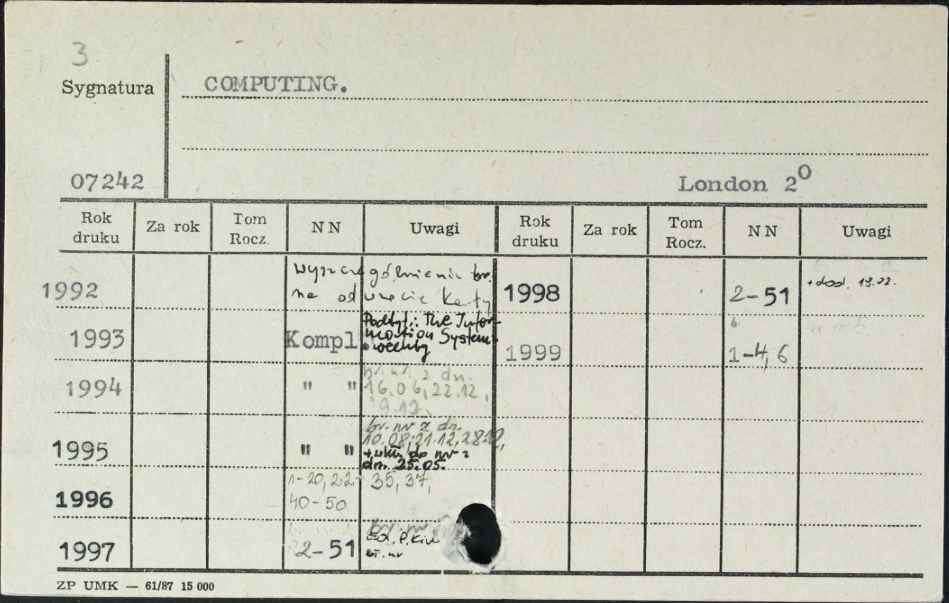 3
Sygnatura COMPUTING.
07242 London 2⁰
Rok druku Za rok Tom Rocz. NN Uwagi Rok druku Za rok Tom Rocz. NN Uwagi
1992 wyszczególnienie br. na odwrocie karty 1998 2-51 + dod.
1993 Kompl. Podtyt.: The Information Systems weekly 1999 1-4, 6
1994 " " br. nr z dn. 16.06, 22.12, 19.12,
1995 " " br. nr z dn. 10.08; 21.12, 28.12, do nr z dn. 25.05.
1996 1-20, 22-35, 37, 40-50
1997 2-51 br. nr
ZP UMK — 61/87 15 000